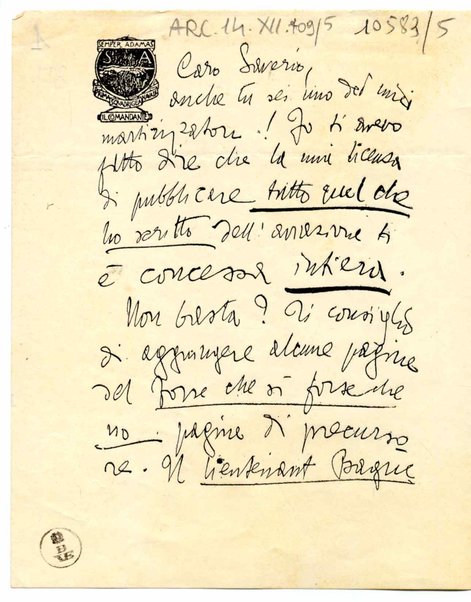 1
ARC. 14. XII. 109/5 10583/5
SEMPER ADAMAS
S A
IL COMANDANTE
Caro Saverio,
anche tu sei uno dei miei
martirizzatori! Io ti avevo
fatto dire che la mia licenza
di pubblicare tutto quel che
ho scritto dell'aviazione ti
è concessa intiera.
Non basta? Ti consiglio
di aggiungere alcune pagine
del Forse che sì forse che
no. pagine di precurso
re. Il lieutenant Bague